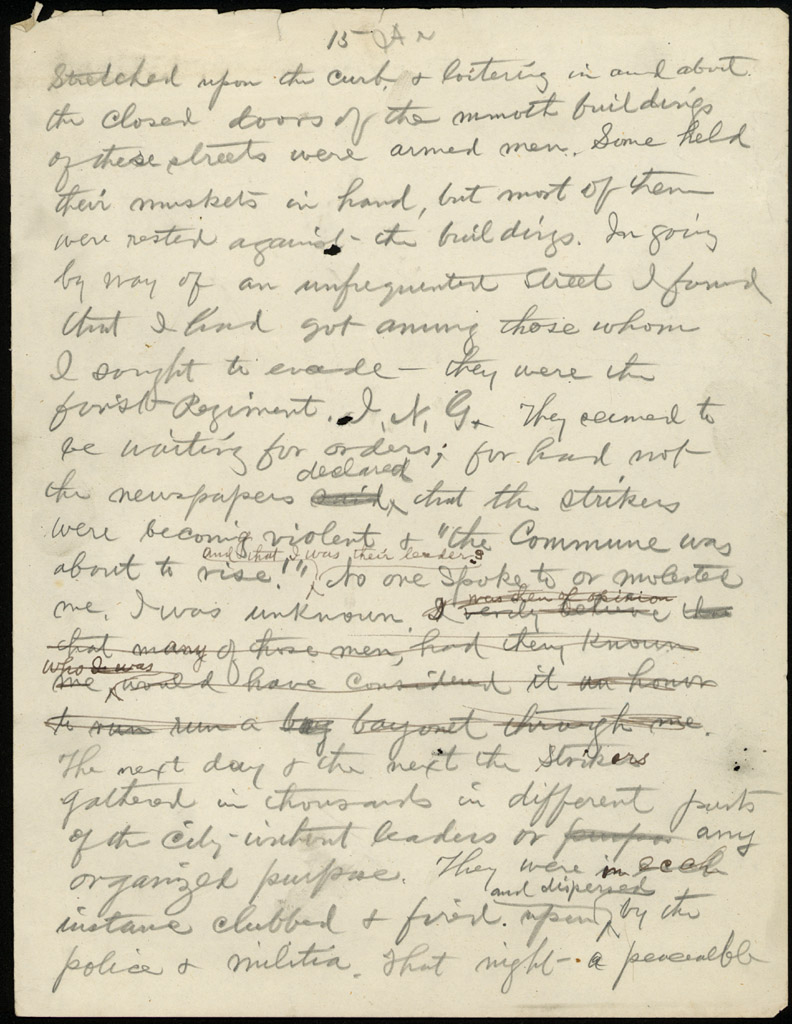 15 JAN
Stretched upon the curb, & loitering in and about
the closed doors of the mmoth buildings
of these streets were armed men. Some held
their muskets in hand, but most of them
were rested against the buildings. In going
by way of an unfrequented street I found
that I had got among those whom
I sought to evade — they were the
first Regiment. I. N. G. They seemed to
be waiting for orders; for had not
declared
the newspapers said, that the strikers
were becoming violent & "the Commune was
and that I was their leader?
about to rise!" No one spoke to or molested
me. I was unknown. I verily believe
was then of opinion
that many of those men, had they known
who I was
me would have considered it an honor
to run run a bay bayonet through me.
The next day & the next the Strikers
gathered in thousands in different parts
of the City without leaders or purpos any
organized purpose. They were in each
and dispersed
instance clubbed & fired upon by the
police & militia. That night a peaceable